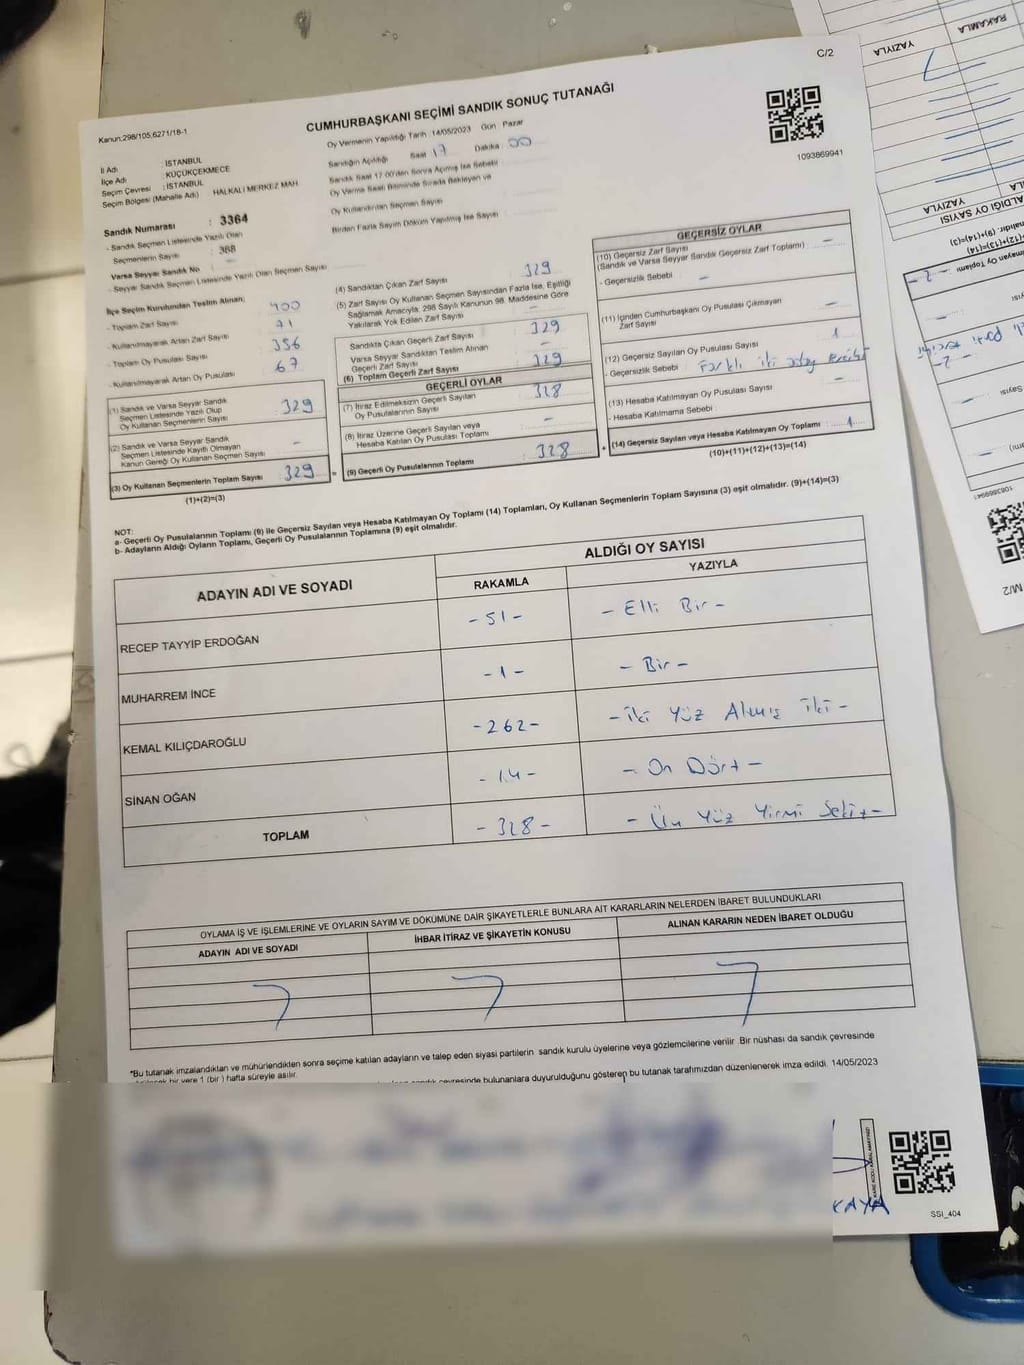 C/2
Kanun:298/105,6271/18-1
CUMHURBAŞKANI SEÇİMİ SANDIK SONUÇ TUTANAĞI
1093869941
İl Adı : İSTANBUL
İlçe Adı : KÜÇÜKÇEKMECE
Seçim Çevresi : İSTANBUL
Seçim Bölgesi (Mahalle Adı) HALKALI MERKEZ MAH
Oy Vermenin Yapıldığı Tarih :14/05/2023 Gün Pazar
Sandığın Açıldığı Saat 17 Dakika 00
Sandık Saat 17:00'den Sonra Açılmış İse Sebebi
Oy Verme Saati Bitiminde Sırada Bekleyen ve
Oy Kullandırılan Seçmen Sayısı
Birden Fazla Sayım Döküm Yapılmış İse Sayısı
Sandık Numarası : 3364
- Sandık Seçmen Listesinde Yazılı Olan
Seçmenlerin Sayısı : 388
Varsa Seyyar Sandık No –
- Seyyar Sandık Seçmen Listesinde Yazılı Olan Seçmen Sayısı
İlçe Seçim Kurulundan Teslim Alınan;
- Toplam Zarf Sayısı 400
- Kullanılmayarak Artan Zarf Sayısı 71
- Toplam Oy Pusulası Sayısı 356
- Kullanılmayarak Artan Oy Pusulası 67
(1) Sandık ve Varsa Seyyar Sandık
Seçmen Listesinde Yazılı Olup
Oy Kullanan Seçmenlerin Sayısı : 329
(2) Sandık ve Varsa Seyyar Sandık
Seçmen Listesinde Kayıtlı Olmayan
Kanun Gereği Oy Kullanan Seçmen Sayısı –
(3) Oy Kullanan Seçmenlerin Toplam Sayısı : 329
(1)+(2)=(3)
(4) Sandıktan Çıkan Zarf Sayısı : 329
(5) Zarf Sayısı Oy Kullanan Seçmen Sayısından Fazla İse, Eşitliği
Sağlamak Amacıyla; 298 Sayılı Kanunun 98. Maddesine Göre
Yakılarak Yok Edilen Zarf Sayısı –
Sandıkta Çıkan Geçerli Zarf Sayısı : 329
Varsa Seyyar Sandıktan Teslim Alınan
Geçerli Zarf Sayısı –
(6) Toplam Geçerli Zarf Sayısı : 329
GEÇERLİ OYLAR
(7) İtiraz Edilmeksizin Geçerli Sayılan
Oy Pusulalarının Sayısı : 328
(8) İtiraz Üzerine Geçerli Sayılan veya
Hesaba Katılan Oy Pusulası Toplamı –
(9) Geçerli Oy Pusulalarının Toplamı : 328
GEÇERSİZ OYLAR
(10) Geçersiz Zarf Sayısı
(Sandık ve Varsa Seyyar Sandık Geçersiz Zarf Toplamı) –
- Geçersiz Sebebi : –
(11) İçinden Cumhurbaşkanı Oy Pusulası Çıkmayan
Zarf Sayısı –
(12) Geçersiz Sayılan Oy Pusulası Sayısı : 1
- Geçersizlik Sebebi : Farklı iki aday
(13) Hesaba Katılmayan Oy Pusulası Sayısı –
- Hesaba Katılmama Sebebi :
(14) Geçersiz Sayılan veya Hesaba Katılmayan Oy Toplamı : 1
(10)+(11)+(12)+(13)=(14)
NOT:
a- Geçerli Oy Pusulalarının Toplamı (9) ile Geçersiz Sayılan veya Hesaba Katılmayan Oy Toplamı (14) Toplamları, Oy Kullanan Seçmenlerin Toplam Sayısına (3) eşit olmalıdır. (9)+(14)=(3)
b- Adayların Aldığı Oyların Toplamı, Geçerli Oy Pusulalarının Toplamına (9) eşit olmalıdır.
ADAYIN ADI VE SOYADI
ALDIĞI OY SAYISI
RAKAMLA YAZIYLA
RECEP TAYYİP ERDOĞAN - 51 - - Elli Bir -
MUHARREM İNCE - 1 - - Bir -
KEMAL KILIÇDAROĞLU - 262 - - İki Yüz Altmış İki -
SİNAN OĞAN - 14 - - On Dört -
TOPLAM - 328 - - Üç Yüz Yirmi Sekiz -
OYLAMA İŞ VE İŞLEMLERİNE VE OYLARIN SAYIM VE DÖKÜMÜNE DAİR ŞİKAYETLERLE BUNLARA AİT KARARLARIN NELERDEN İBARET BULUNDUKLARI
ADAYIN ADI VE SOYADI İHBAR İTİRAZ VE ŞİKAYETİN KONUSU ALINAN KARARIN NEDEN İBARET OLDUĞU
*Bu tutanak imzalandıktan ve mühürlendikten sonra seçime katılan adayların ve talep eden siyasi partilerin sandık kurulu üyelerine veya gözlemcilerine verilir. Bir nüshası da sandık çevresinde
bir yere 1 (bir) hafta süreyle asılır.
çevresinde bulunanlara duyurulduğunu gösteren bu tutanak tarafımızdan düzenlenerek imza edildi. 14/05/2023
KAYA
SSI_404
RAKAMLA
YAZIYLA
YAZIYLA
ALDIĞI OY SAYISI
M/2